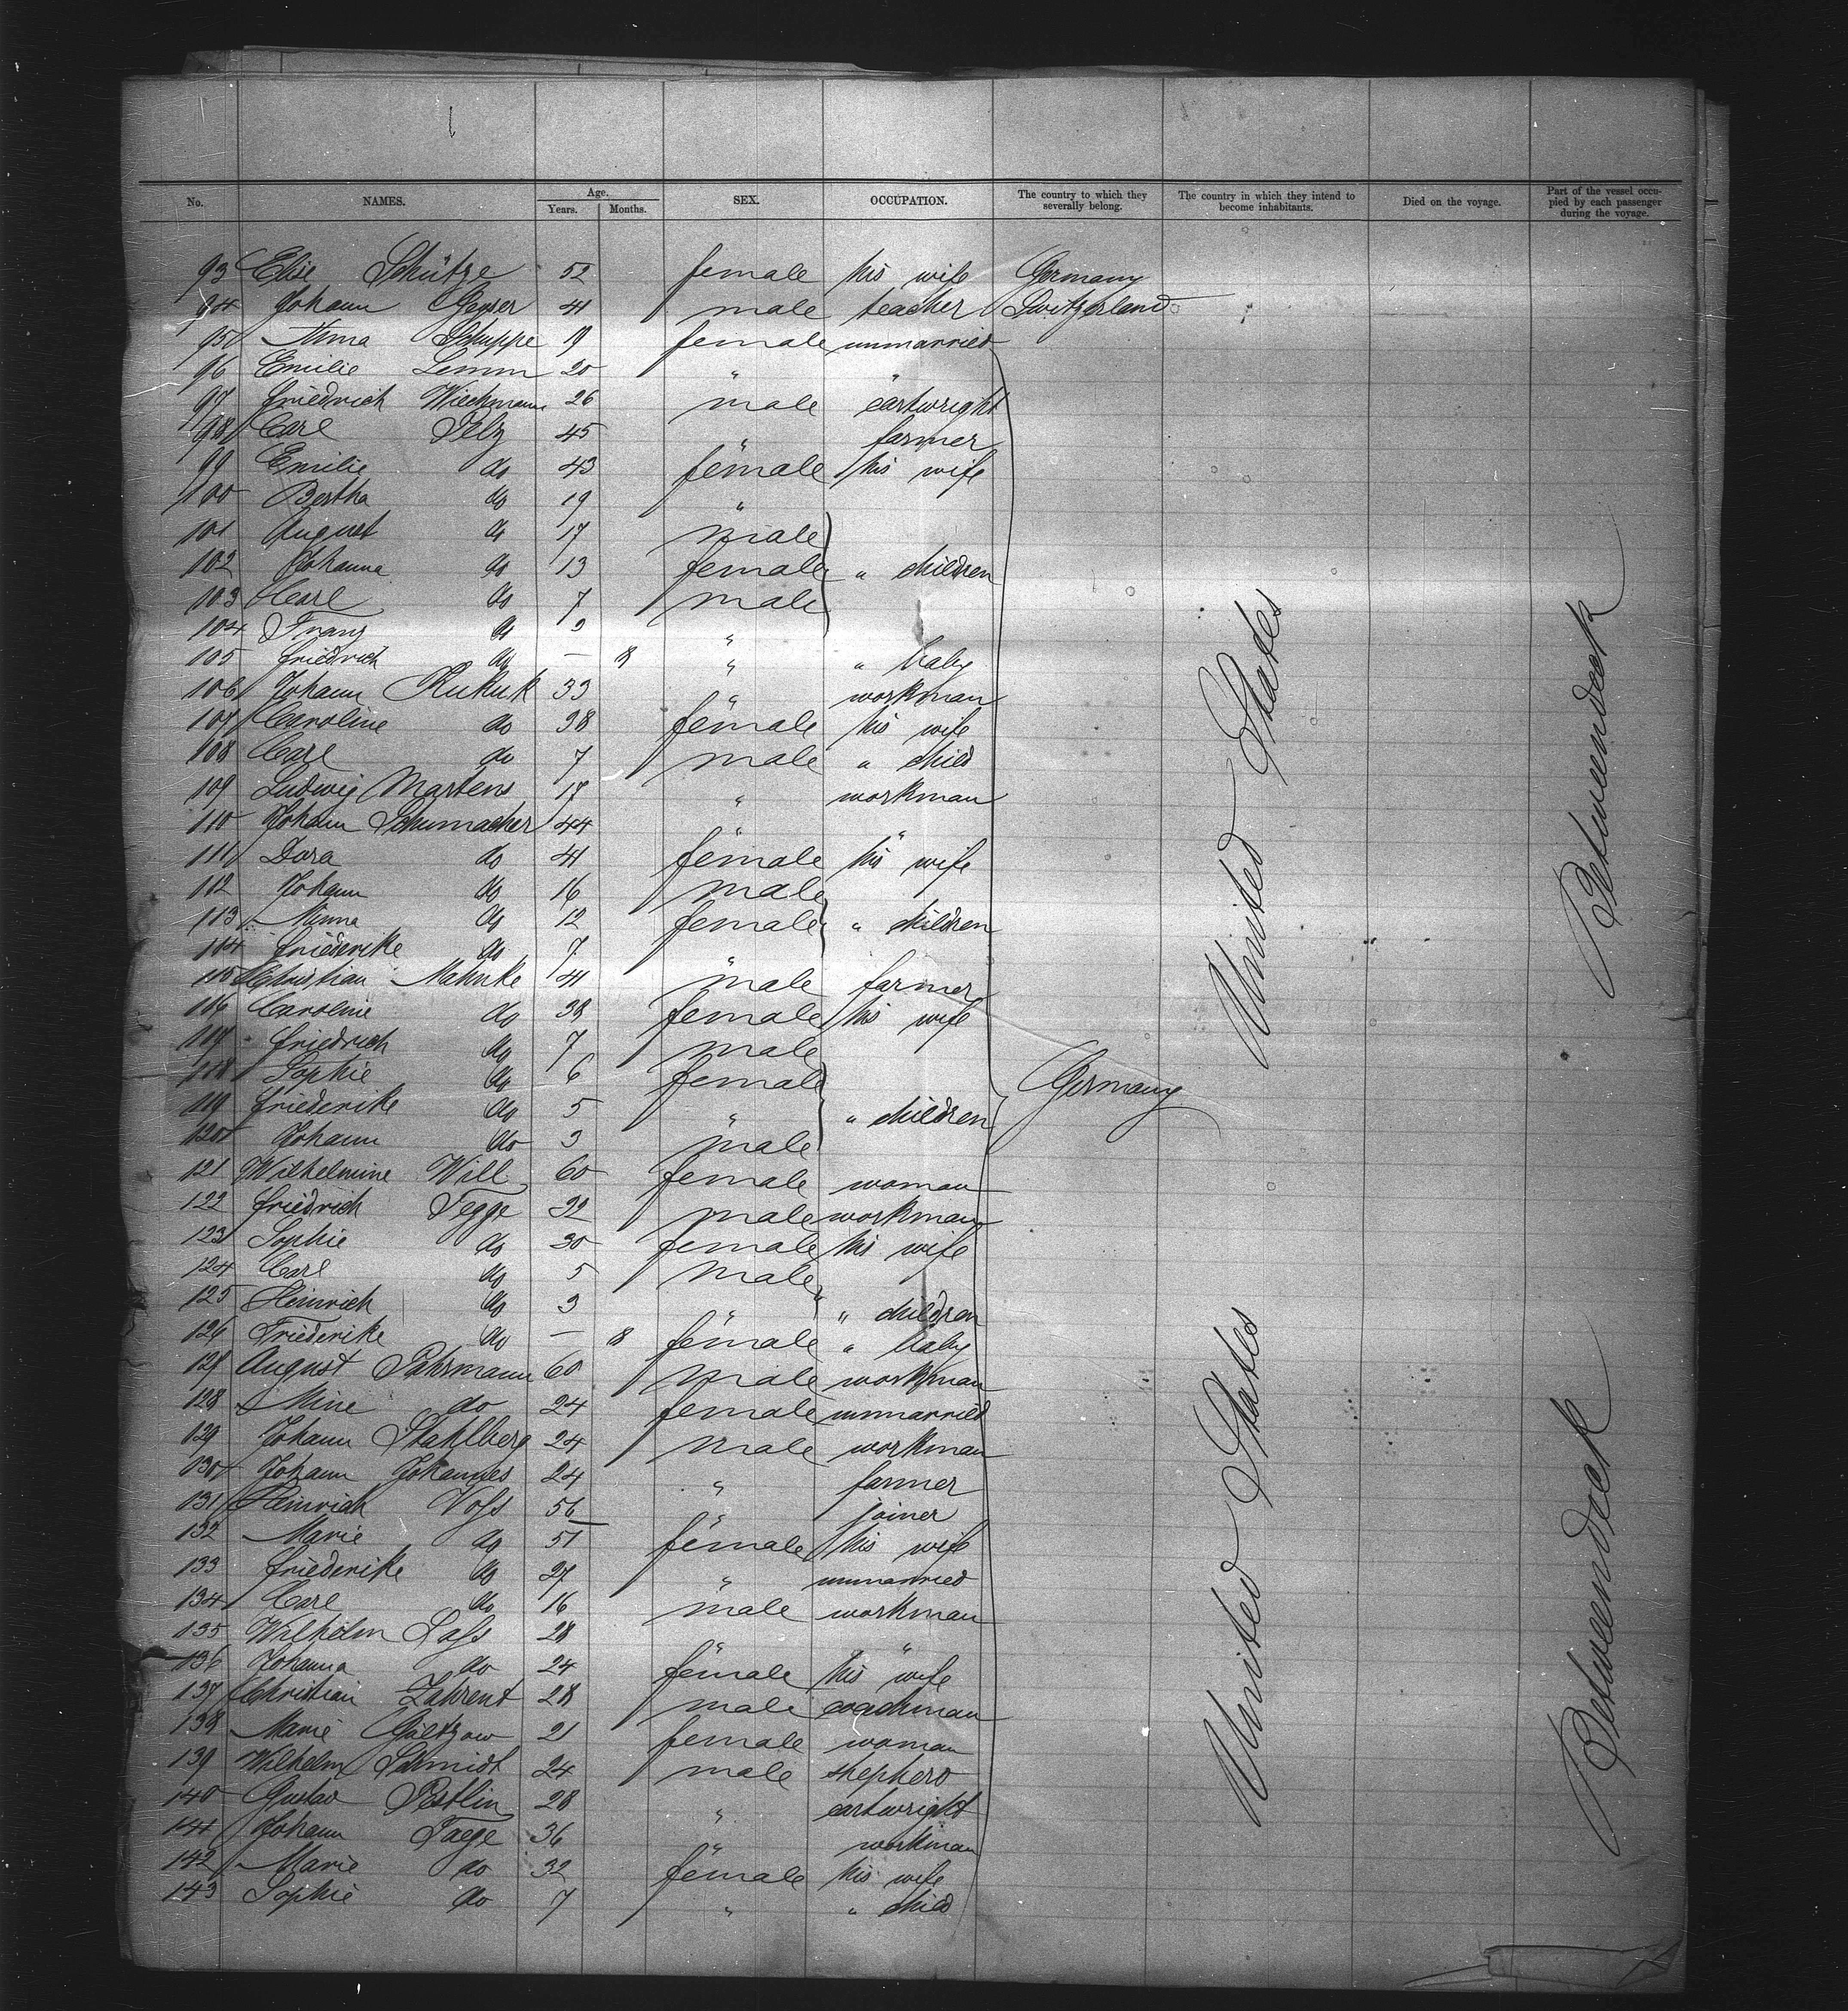 No. NAMES. Age. Years. Months. SEX. OCCUPATION. The country to which they severally belong. The country in which they intend to become inhabitants. Died on the voyage. Part of the vessel occupied by each passenger during the voyage.
93 Elise Schütze 52 female his wife Germany
94 Johann Geyser 41 male teacher Switzerland
95 Anna Schuppe 19 female unmarried
96 Emilie Lemm 20 " "
97 Friedrich Wiechmann 26 male cartwright
98 Carl Selz 45 " farmer
99 Emilie do 43 female his wife
100 Bertha do 19 "
101 August do 17 male
102 Johanna do 13 female " children
103 Carl do 7 male
104 Franz do 3 "
105 Friedrich do — 8 " " baby
106 Johann Kukuk 33 " workman
107 Caroline do 38 female his wife
108 Carl do 7 male " child
109 Ludwig Martens 17 " workman
110 Johann Schumacher 44 " "
111 Dora do 41 female his wife
112 Johann do 16 male
113 Minna do 12 female " children
114 Friederike do 7 "
115 Christian Mahnke 41 male farmer
116 Caroline do 38 female his wife
117 Friedrich do 7 male
118 Sophie do 6 female Germany
119 Friederike do 5 " " children
120 Johann do 3 male
121 Wilhelmine Will 60 female woman
122 Friedrich Tegge 32 male workman
123 Sophie do 30 female his wife
124 Carl do 5 male
125 Heinrich do 3 " " children
126 Friederike do — 8 female " baby
127 August Fuhrmann 60 male workman
128 Mine do 24 female unmarried
129 Johann Stahlberg 24 male workman
130 Johann Johannes 24 " farmer
131 Heinrich Voss 56 " joiner
132 Marie do 51 female his wife
133 Friederike do 27 " unmarried
134 Carl do 16 male workman
135 Wilhelm Lass 28 " "
136 Johanna do 24 female his wife
137 Christian Zahrent 28 male coachman
138 Marie Gültzow 21 female woman
139 Wilhelm Schmidt 24 male shepherd
140 Gustav Pestlin 28 " cartwright
141 Johann Taege 36 " workman
142 Marie do 32 female his wife
143 Sophie do 7 " " child
United States
United States
Betweendeck
Betweendeck